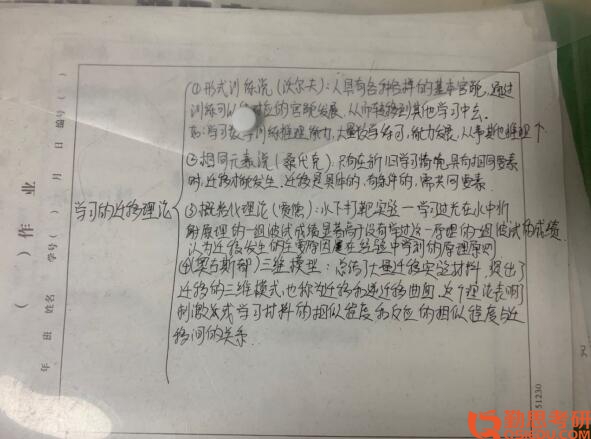 学习的迁移理论
①形式训练说（沃尔夫）：人具有各种各样的基本官能，通过
训练可以 对应的官能发展，从而转移到其他学习中去。
学习 训练推理能力，大量 练习，能力发展，从事其他推理
②相同元素说（桑代克）：只有在新旧学习情境具有相同要素
时，迁移才能发生，迁移是具体的，有条件的，需共同要素.
③概括化理论（贾德）：水下打靶实验—学习过光在水中折
射原理的一组被试成绩显著高于没有学过这一原理的一组被试的成绩.
认为迁移发生的主要原因是在经验中学到的原理原则
④（奥斯古德）三维模型：总结了大量迁移实验材料，提出了
迁移的三维模式，也称为迁移和逆迁移曲面，这个理论表明了
刺激 学习材料的相似程度和反应的相似程度与迁
移间的关系.
（ ）作业
年 班 姓名 学号（ ） 月 日 编号（ ）
51230
勤思考研